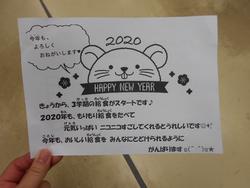 今年も、
よろしく
おねがいします♥
2020
HAPPY NEW YEAR
きょうから、3学期の給食がスタートです♪
2020年も、もりもり給食をたべて
元気いっぱい ニコニコすごしてくれるとうれしいです
今年も、おいしい給食を みんなにとどけられるように
がんばります